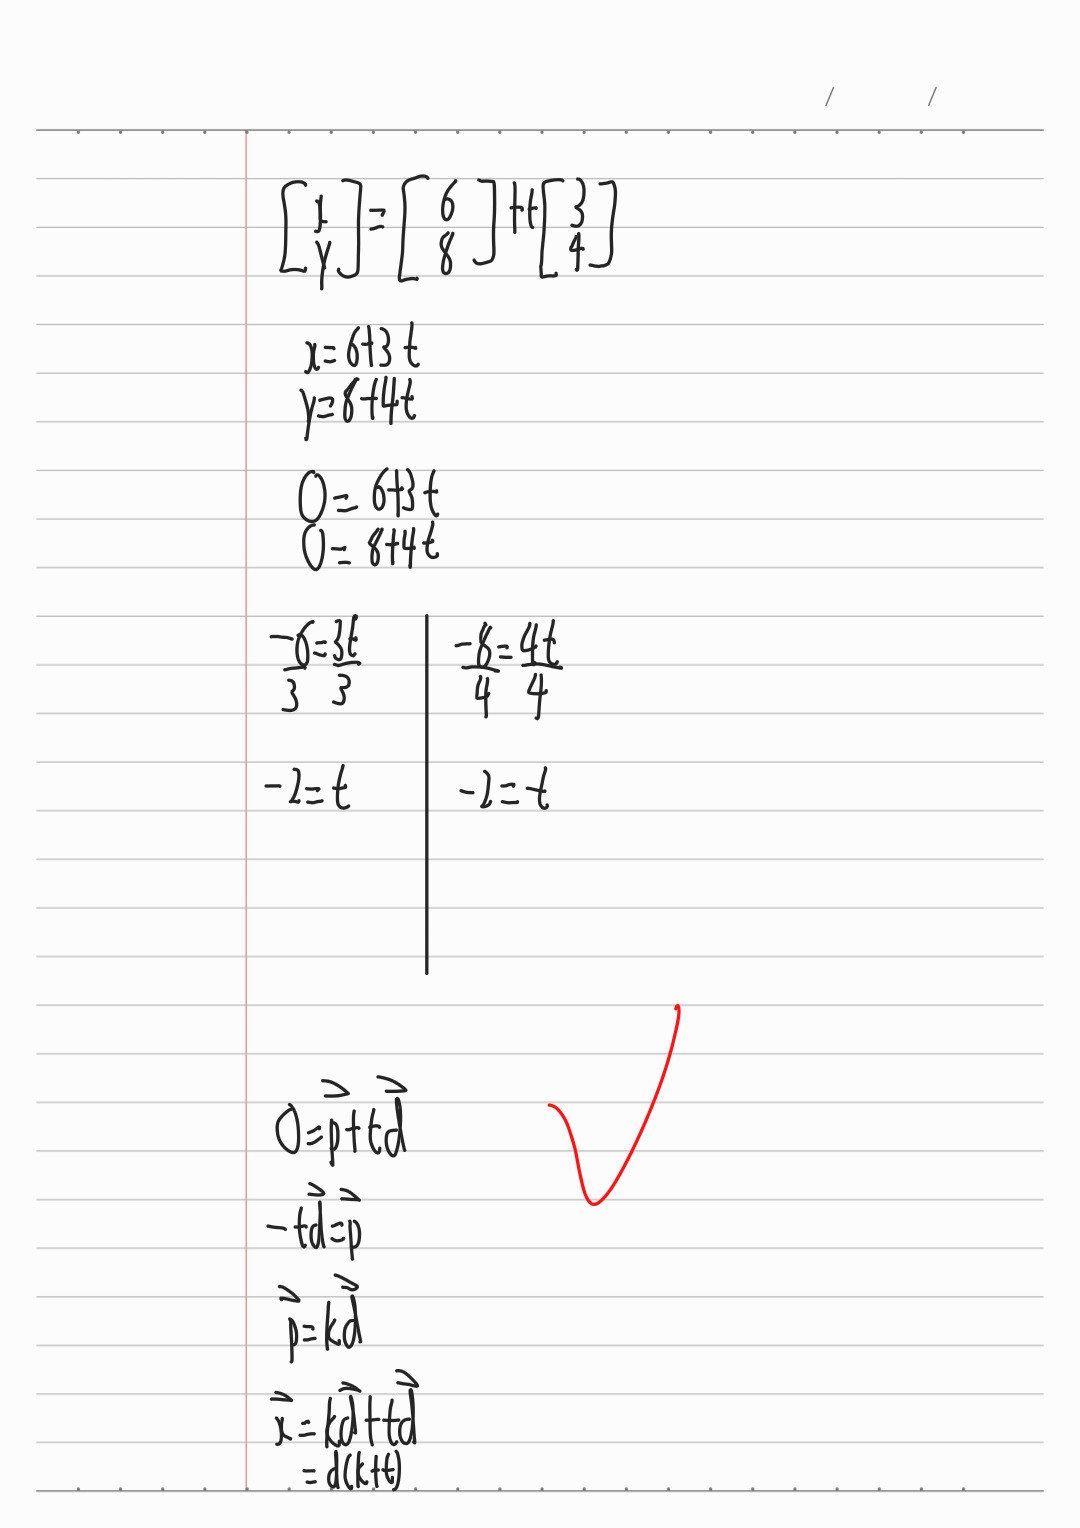 [x y] = [6 8] + t[3 4]
x = 6+3t
y = 8+4t
0 = 6+3t
0 = 8+4t
-6/3 = 3t/3
-2 = t
-8/4 = 4t/4
-2 = t
0 = p⃗ + td⃗
-td⃗ = p⃗
p⃗ = kd⃗
x⃗ = kd⃗ + td⃗
= d(k+t)